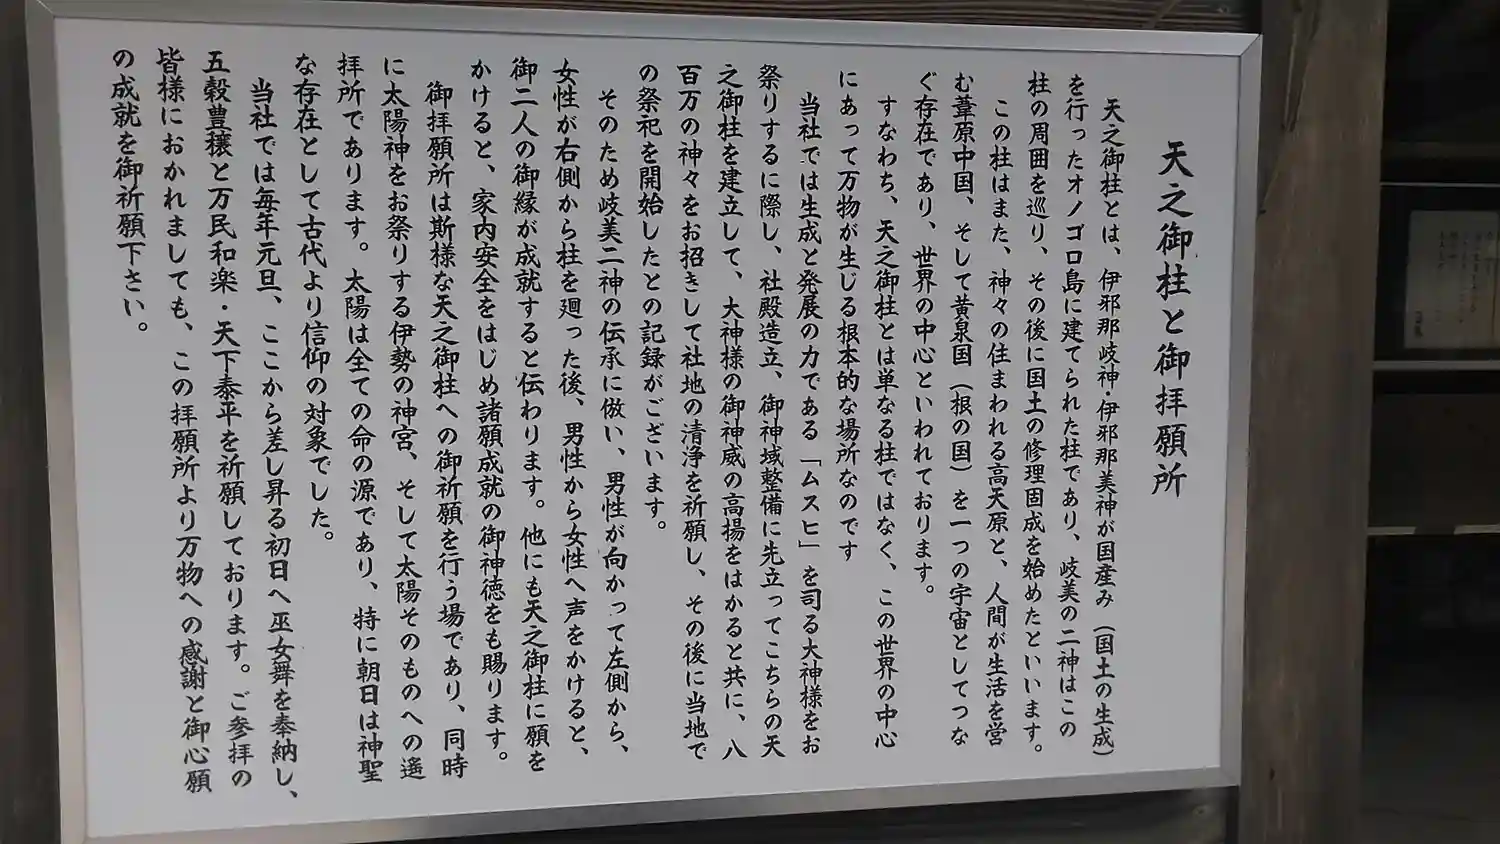 天之御柱と御拝願所
天之御柱とは、伊邪那岐神・伊邪那美神が国産み（国土の生成）
を行ったオノゴロ島に建てられた柱であり、岐美の二神はこの
柱の周囲を巡り、その後に国土の修理固成を始めたといいます。
この柱はまた、神々の住まわれる高天原と、人間が生活を営
む葦原中国、そして黄泉国（根の国）を一つの宇宙としてつな
ぐ存在であり、世界の中心といわれております。
すなわち、天之御柱とは単なる柱ではなく、この世界の中心
にあって万物が生じる根本的な場所なのです
当社では生成と発展の力である「ムスヒ」を司る大神様をお
祭りするに際し、社殿造立、御神域整備に先立ってこちらの天
之御柱を建立して、大神様の御神威の高揚をはかると共に、八
百万の神々をお招きして社地の清浄を祈願し、その後に当地で
の祭祀を開始したとの記録がございます。
そのため岐美二神の伝承に倣い、男性が向かって左側から、
女性が右側から柱を廻った後、男性から女性へ声をかけると、
御二人の御縁が成就すると伝わります。他にも天之御柱に願を
かけると、家内安全をはじめ諸願成就の御神徳をも賜ります。
御拝願所は斯様な天之御柱への御祈願を行う場であり、同時
に太陽神をお祭りする伊勢の神宮、そして太陽そのものへの遙
拝所であります。太陽は全ての命の源であり、特に朝日は神聖
な存在として古代より信仰の対象でした。
当社では毎年元旦、ここから差し昇る初日へ巫女舞を奉納し、
五穀豊穣と万民和楽・天下泰平を祈願しております。ご参拝の
皆様におかれましても、この拝願所より万物への感謝と御心願
の成就を御祈願下さい。